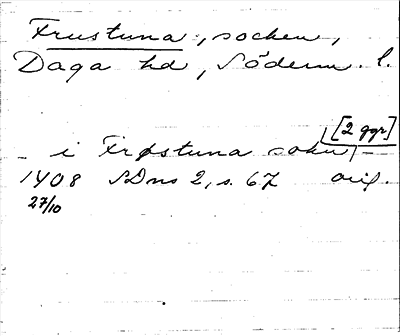 Frustuna, socken,
Daga hd, Söderm. l.
[2 ggr]
– i Frøstuna sokn –
1408 SDns 2, s. 67 orig.
27/10